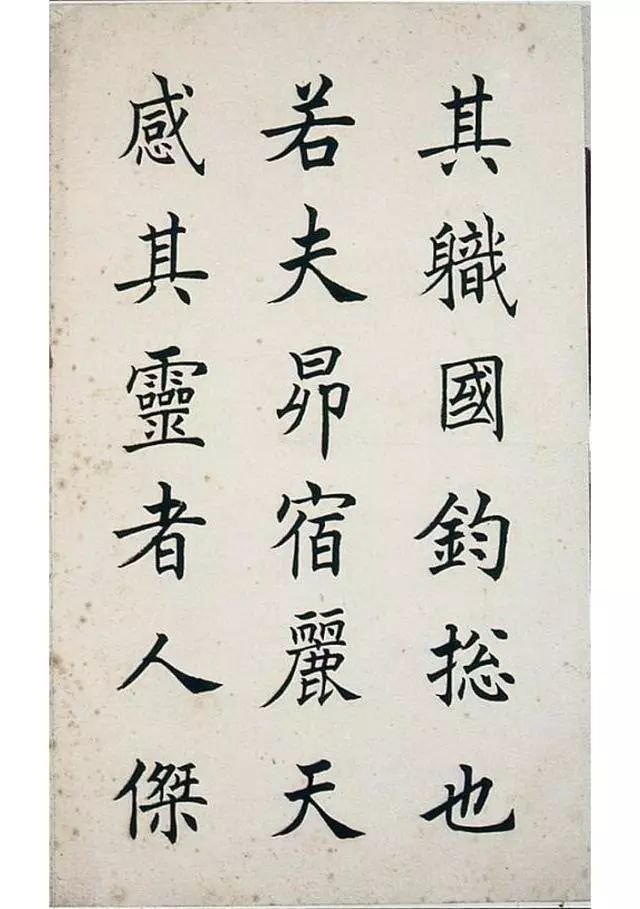 其軄國鈞揔也
若夫昴宿麗天
感其靈者人傑